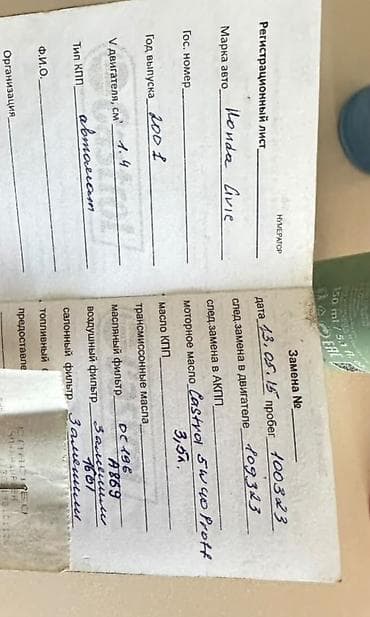 Регистрационный лист
НУМЕРАТОР
Марка авто Honda Civic
Гос. номер
Год выпуска 2002
V двигателя, см³ 1.4
Тип КПП автомат
Ф.И.О.
Организация
Замена №
дата 13.05.15 пробег 100323
след.замена в двигателе 109323
след.замена в АКПП
моторное масло Castrol 5w40 Proff
3,5л.
масло КПП
трансмиссонные масла
масляный фильтр OC196
A869
воздушный фильтр Заменили
1601
салонный фильтр Заменили
топливный
предоставле
350 ml / 5